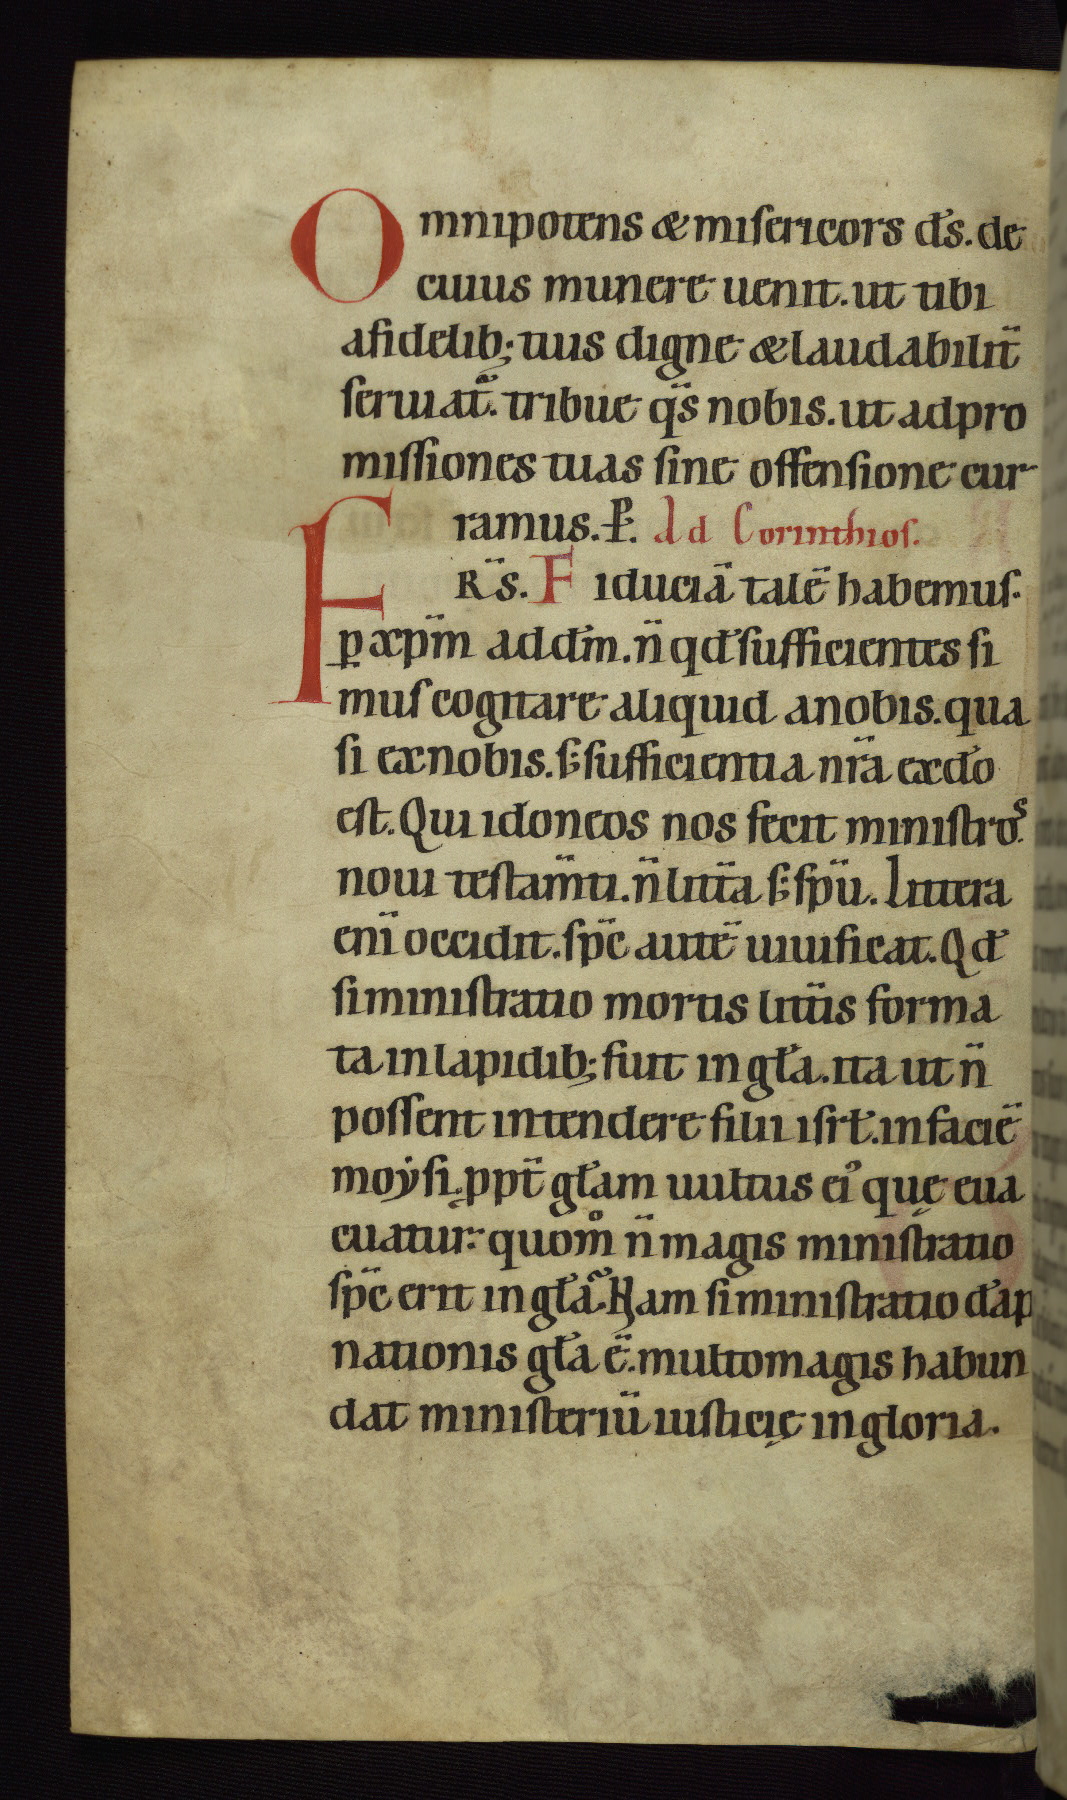 Omnipotens & misericors ds̄. de
cuius munere uenit. ut tibi
afidelib; tuis digne & laudabilit̄
seruiat̄. tribue qs̄ nobis. ut adpro
missiones tuas sine offensione cur
ramus. P̄. Ad Corinthios.
FRS̄. Fiduciā talē habemus.
ꝑ xp̄m add̄m. n̄ qd̄ sufficientes si
mus cogitare aliquid anobis. qua
si exnobis. s; sufficientia nr̄a exdō
est. Qui idoneos nos fecit ministros.
noui testam̄ti. n̄ litt̄a s; sp̄u. Littera
eni̅ occidit. sp̄c autē uiuificat. Qd̄
siministratio mortis litt̄is forma
ta inlapidib; fuit in gl̄a. ita ut n̄
possent intendere filii isrl̄. infaciē
moẏsi. ppt̄ gl̄am uultus ei᾽ quę eua
cuatur. quom̊ n̄ magis ministratio
sp̄c erit in gl̄a. Nam siministratio dāp
nationis gl̄a ē. multomagis habun
dat ministeriū iusticię in gloria.